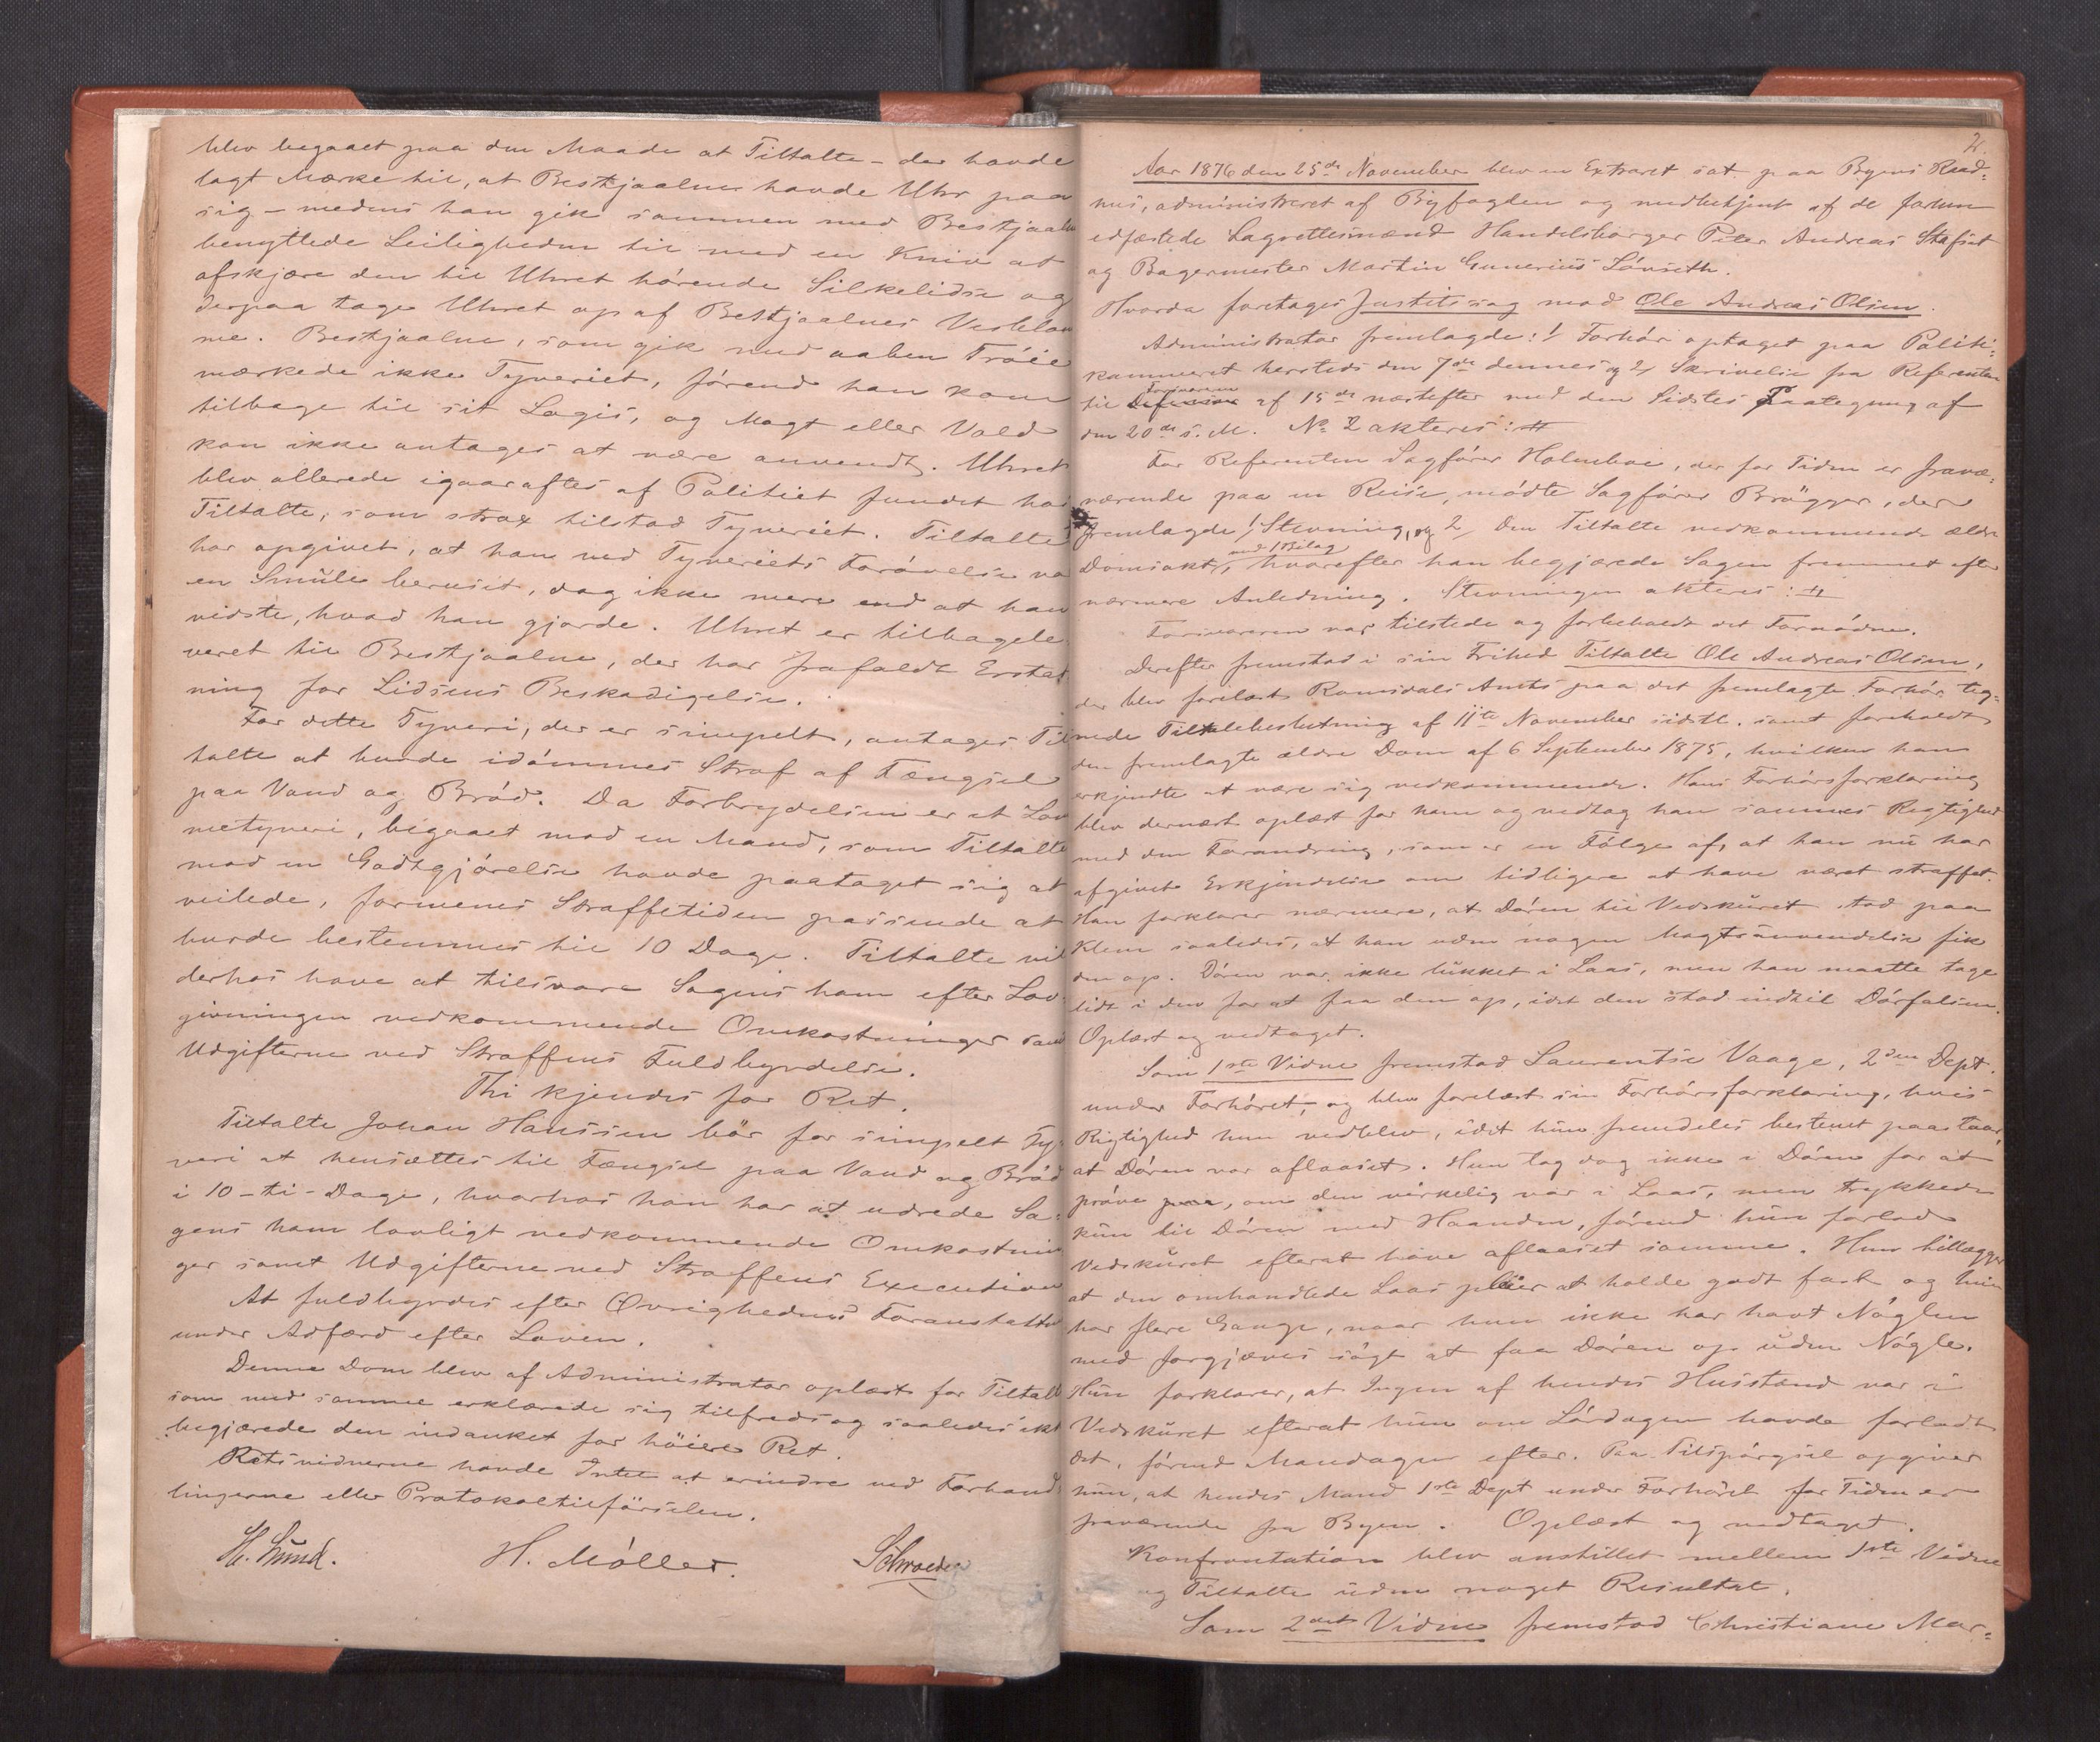 blev begaaet paa den Maade at Tiltalte – der havde
lagt Mærke til, at Bestjaalne havde Uhr paa
sig – medens han gik sammen med Bestjaalne
benyttede Leiligheden til med en Kniv at
afskjære den til Uhret hørende Silkelidse og
derpaa tage Uhret op af Bestjaalnes Vestelom
me. Bestjaalne, som gik med aaben Trøie
mærkede ikke Tyveriet, førend han kom
tilbage til sit Logis, og Magt eller Vold
kan ikke antages at være anvendt. Uhret
blev allerede igaaraftes af Politiet fundet hos
Tiltalte, som strax tilstod Tyveriet. Tiltalte
har opgivet, at han ved Tyveriets Forøvelse va
en Smule beruset, dog ikke mere end at han
vidste, hvad han gjorde. Uhret er tilbagele
veret til Bestjaalne, der har frafaldt Erstat
ning for Lidsens Beskadigelse.
For dette Tyveri, der er simpelt, antages Til
talte at burde idømmes Straf af Fængsel
paa Vand og Brød. Da Forbrydelsen er et Lom
metyveri, begaaet mod en Mand, som Tiltalte
mod en Godtgjørelse havde paataget sig at
veilede, formenes Straffetiden passende at
burde bestemmes til 10 Dage. Tiltalte vil
derhos have at tilsvare Sagens ham efter Lov
givningen vedkommende Omkostninger samt
Udgifterne ved Straffens Fuldbyrdelse.
Thi kjendes for Ret.
Tiltalte Johan Hanssen bör for simpelt Ty
veri at hensættes til Fængsel paa Vand og Brød
i 10 – ti – Dage, hvorhos han har at udrede Sa-
gens ham lovligt vedkommende Omkostnin
ger samt Udgifterne ved Straffens Execution
At fuldbyrdes efter Øvrighedens Foranstaltn
under Adfærd efter Loven.
Denne Dom blev af Administrator oplæst for Tiltalte
som med samme erklærede sig tilfreds og saaledes ikke
begjærede den indanket for höiere Ret.
Retsvidnerne havde Intet at erindre ved Forhand
lingerne eller Protokoltilförselen.
H. Møller.
2.
Aar 1876 den 25de November blev en Extraret sat paa Byens Raad-
hus, administreret af Byfogden og medbetjent af de forhen
edfæstede Lagrettesmænd Handelsborger Peter Andreas Stafset
og Bagermester Martin Gunerius Lønseth.
Hvorda foretages Justitssag mod Ole Andreas Olsen.
Administrator fremlagde: 1/ Forhör optaget paa Politi-
kammeret hersteds den 7de dennes og 2/ Skrivelse fra Referenten
til Forsvareren af 15de næstefter med den Sidstes Paategning af
den 20de s. M. No 2 akteres:
For Referenten Sagfører Holmboe, der for Tiden er fravæ-
værende paa en Reise, mødte Sagfører Brügger, der
fremlagde 1/ Stevning, og 2/ den Tiltalte vedkommende ældre
Domsakt, med 1 Bilag hvorefter han begjærede Sagen fremmet efter
nærmere Anledning. Stevningen akteres:
Forsvareren var tilstede og forbeholdt det Fornødne.
Derefter fremstod i sin Frihed Tiltalte Ole Andreas Olsen,
der blev forelæst Romsdals Amts paa det fremlagte Forhör teg-
nede Tiltalebeslutning af 11te November sidstl. samt foreholdt
den fremlagte ældre Dom af 6 September 1875, hvilken han
erkjendte at være sig vedkommende. Hans Forhørsforklaring
blev dernæst oplæst for ham og vedtog han sammes Rigtighed
med den Forandring, som er en Følge af, at han nu har
afgivet Erkjendelse om tidligere at have været straffet.
Han forklarer nærmere, at Døren til Vedskuret stod paa
Klem saaledes, at han uden nogen Magtsanvendelse fik
den op. Døren var ikke lukket i Laas, men han maatte tage
lidt i den for at faa den op, idet den stod indtil Dørfalsen.
Oplæst og vedtaget.
Som 1ste Vidne fremstod Laurentse Vaage, 2den Dept.
under Forhøret, og blev forelæst sin Forhörsforklaring, hvis
Rigtighed hun vedblev, idet hun fremdeles bestemt paastaar,
at Døren var aflaaset. Hun tog dog ikke i Døren for at
prøve paa, om den virkelig var i Laas, men trykkede
kun til Døren med Haanden, førend hun forlod
Vedskuret efterat have aflaaset samme. Hun tillægger
at den omhandlede Laas pleier at holde godt fast og hun
har flere Gange, naar hun ikke har havt Nøglen
med forgjæves søgt at faa Døren op uden Nøgle.
Hun forklarer, at Ingen af hendes Husstand var i
Vedskuret efterat hun om Lørdagen havde forladt
det, førend Mandagen efter. Paa Tilspørgsel opgiver
hun, at hendes Mand 1ste Dept under Forhöret for Tiden er
fraværende fra Byen. Oplæst og vedtaget.
Konfrontation blev anstillet mellem 1ste Vidne
og Tiltalte uden noget Resultat.
Som 2det Vidne fremstod Christiane Mar-